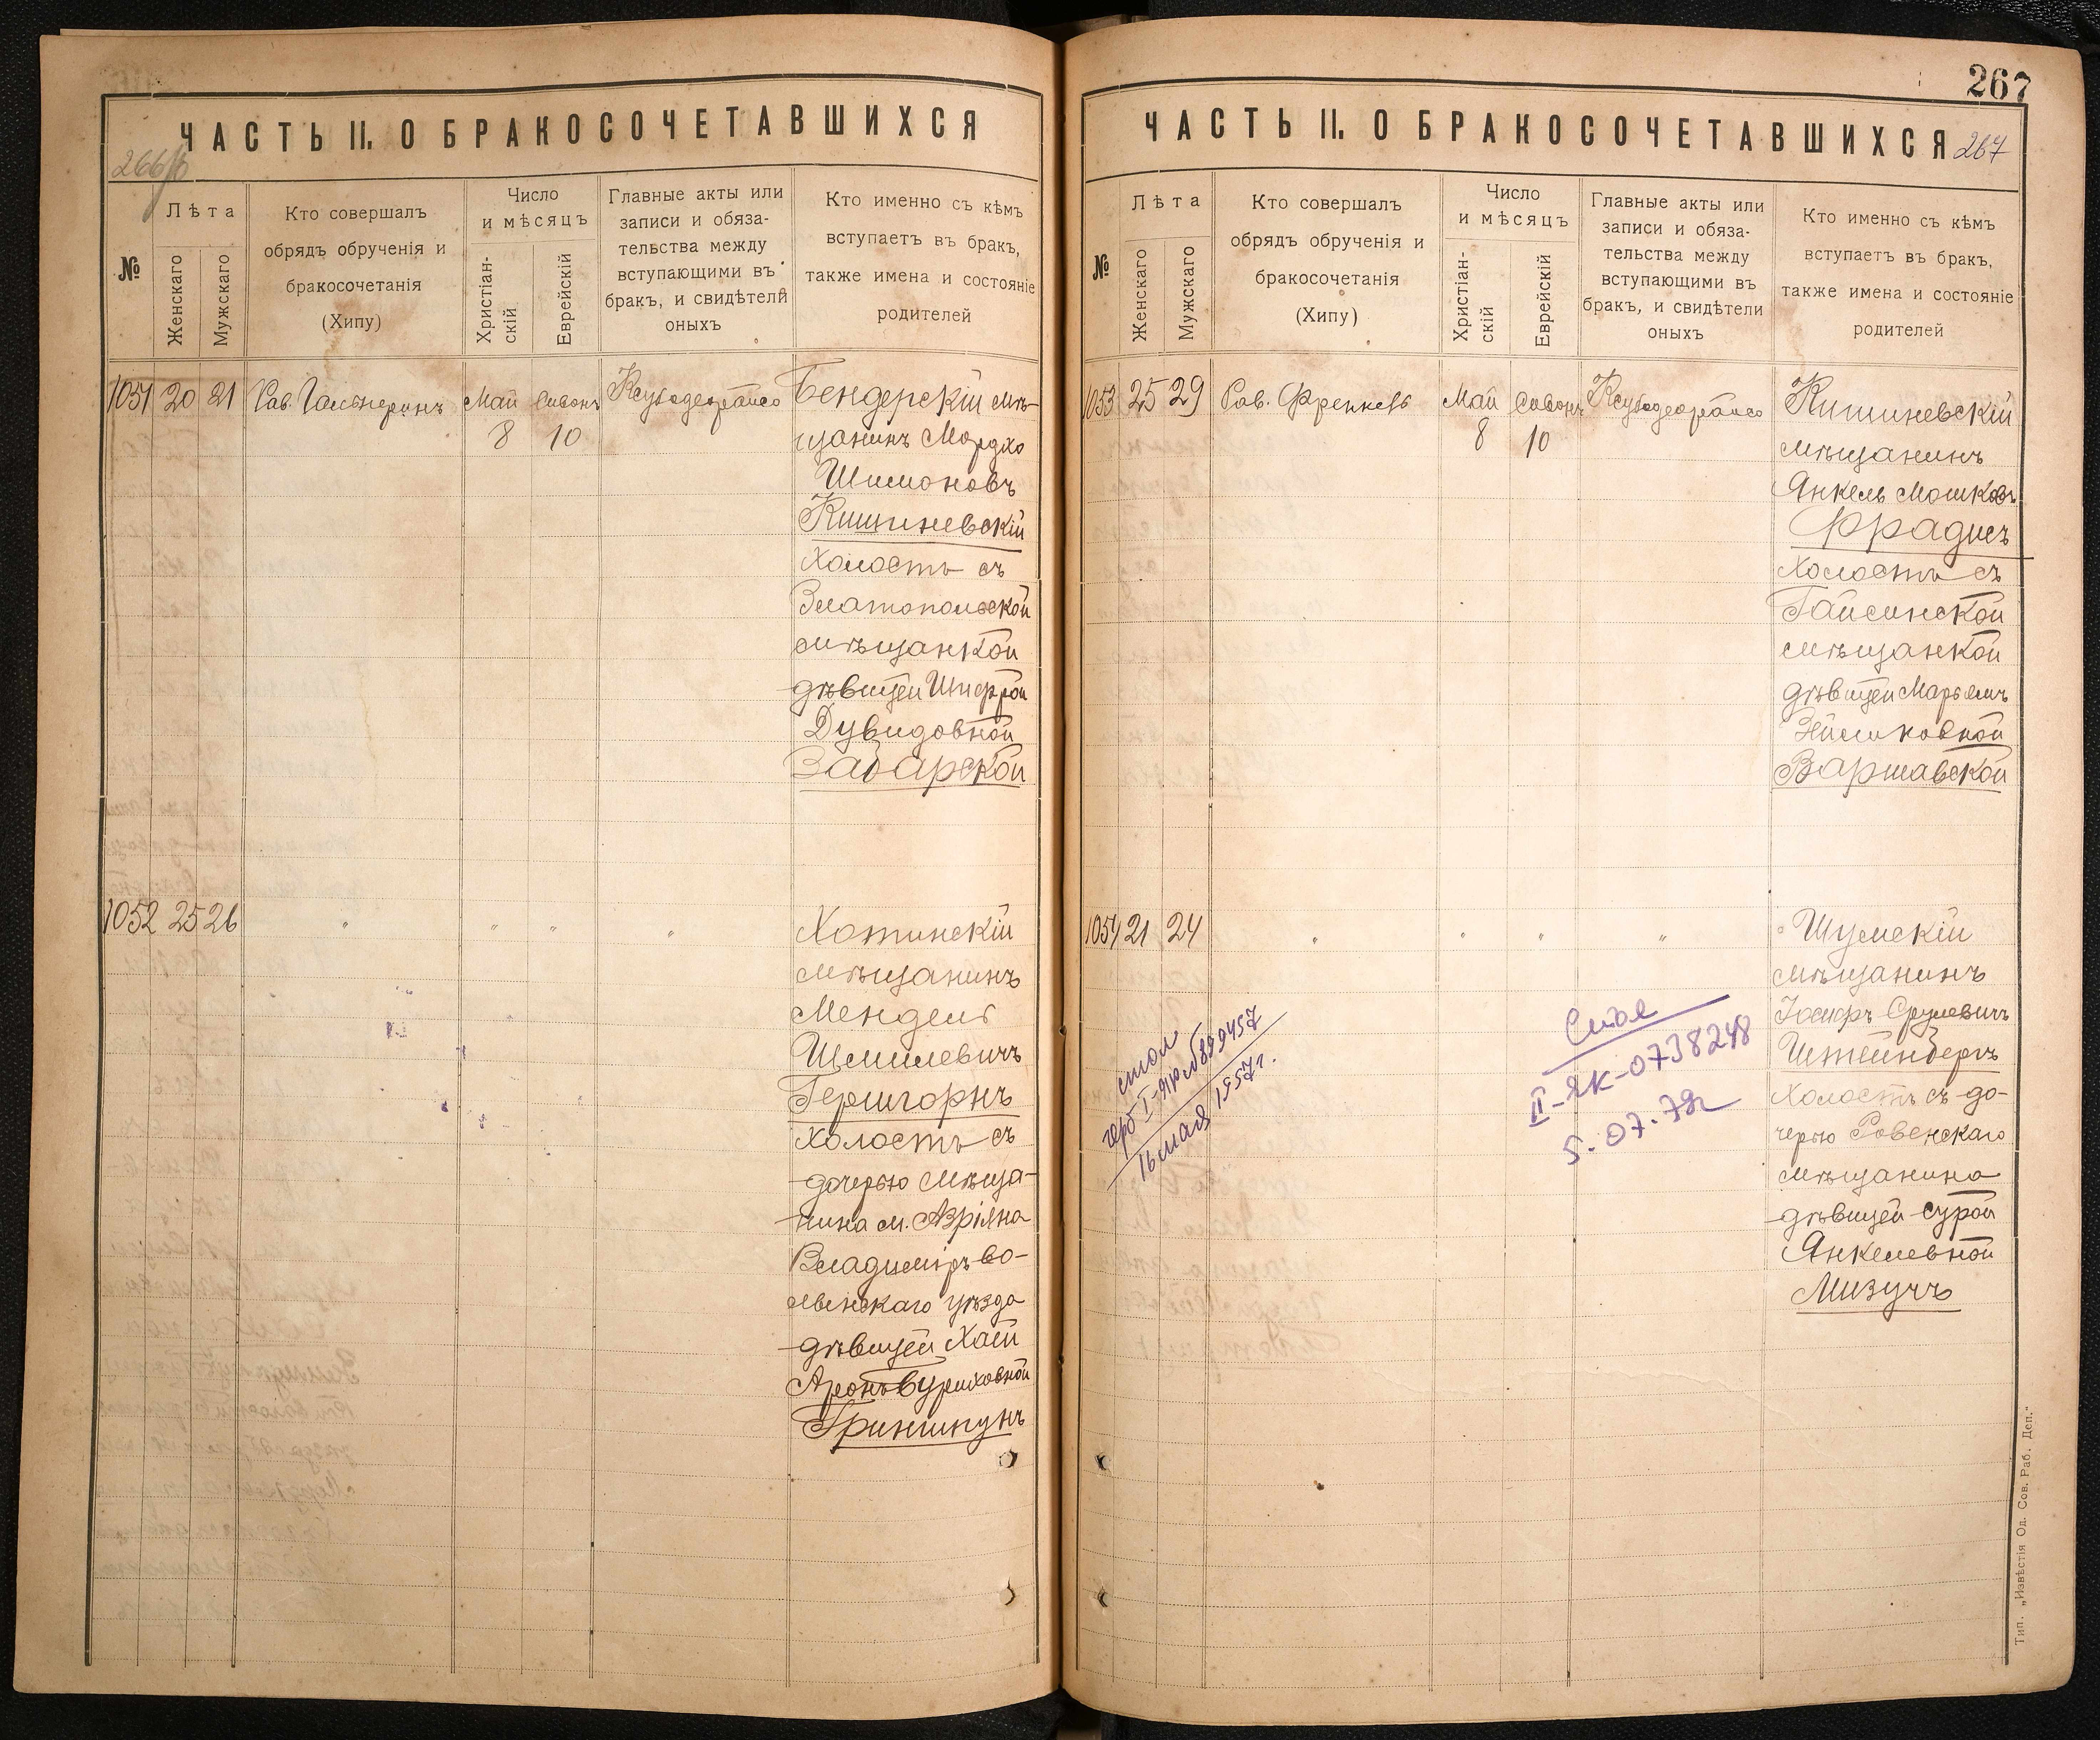 ЧАСТЬ II. О БРАКОСОЧЕТАВШИХСЯ
266/б
№
Лѣта
Женскаго
Мужскаго
Кто совершалъ
обрядъ обрученія и
бракосочетанія
(Хипу)
Число
и мѣсяцъ
Христіан-
скій
Еврейскій
Главные акты или
записи и обяза-
тельства между
вступающими въ
бракъ, и свидѣтели
оныхъ
Кто именно съ кѣмъ
вступаетъ въ бракъ,
также имена и состояніе
родителей
1051 20 21 Рав. Гальперинъ Май Сивонъ
8 10
Бендерскій мѣ-
щанинъ Мордко
Шимоновъ
Кишиневскій
холостъ съ
Златопольской
мѣщанкой
дѣвицей Шифрой
Дувидовной
Забарской
1052 25 26 " " " "
Хотинскій
мѣщанинъ
Мендель
Шмилевичъ
Гершгорнъ
холостъ съ
дочерью мѣща-
нина м.
Владиміръ-во-
лынскаго уѣзда
дѣвицей Хаей
Гриншпунъ
267
ЧАСТЬ II. О БРАКОСОЧЕТАВШИХСЯ
267
№
Лѣта
Женскаго
Мужскаго
Кто совершалъ
обрядъ обрученія и
бракосочетанія
(Хипу)
Число
и мѣсяцъ
Христіан-
скій
Еврейскій
Главные акты или
записи и обяза-
тельства между
вступающими въ
бракъ, и свидѣтели
оныхъ
Кто именно съ кѣмъ
вступаетъ въ бракъ,
также имена и состояніе
родителей
1053 25 29 Рав. Френкель Май Сивонъ
8 10
Кишиневскій
мѣщанинъ
Янкель Мошковъ
Фрадисъ
холостъ съ
Гайсинской
мѣщанкой
дѣвицей Марьемъ
Зейликовной
Варшавской
1054 21 24 " " " "
Шумскій
мѣщанинъ
Іосифъ Срулевичъ
Штейнбергъ
холостъ съ до-
черью Ровенскаго
мѣщанина
дѣвицей Сурой
Янкелевной
Мизучъ
16 мая 1957г.
II-ЯК-0738248
5.07.78г
Тип. „Извѣстія Од. Сов. Раб. Деп."